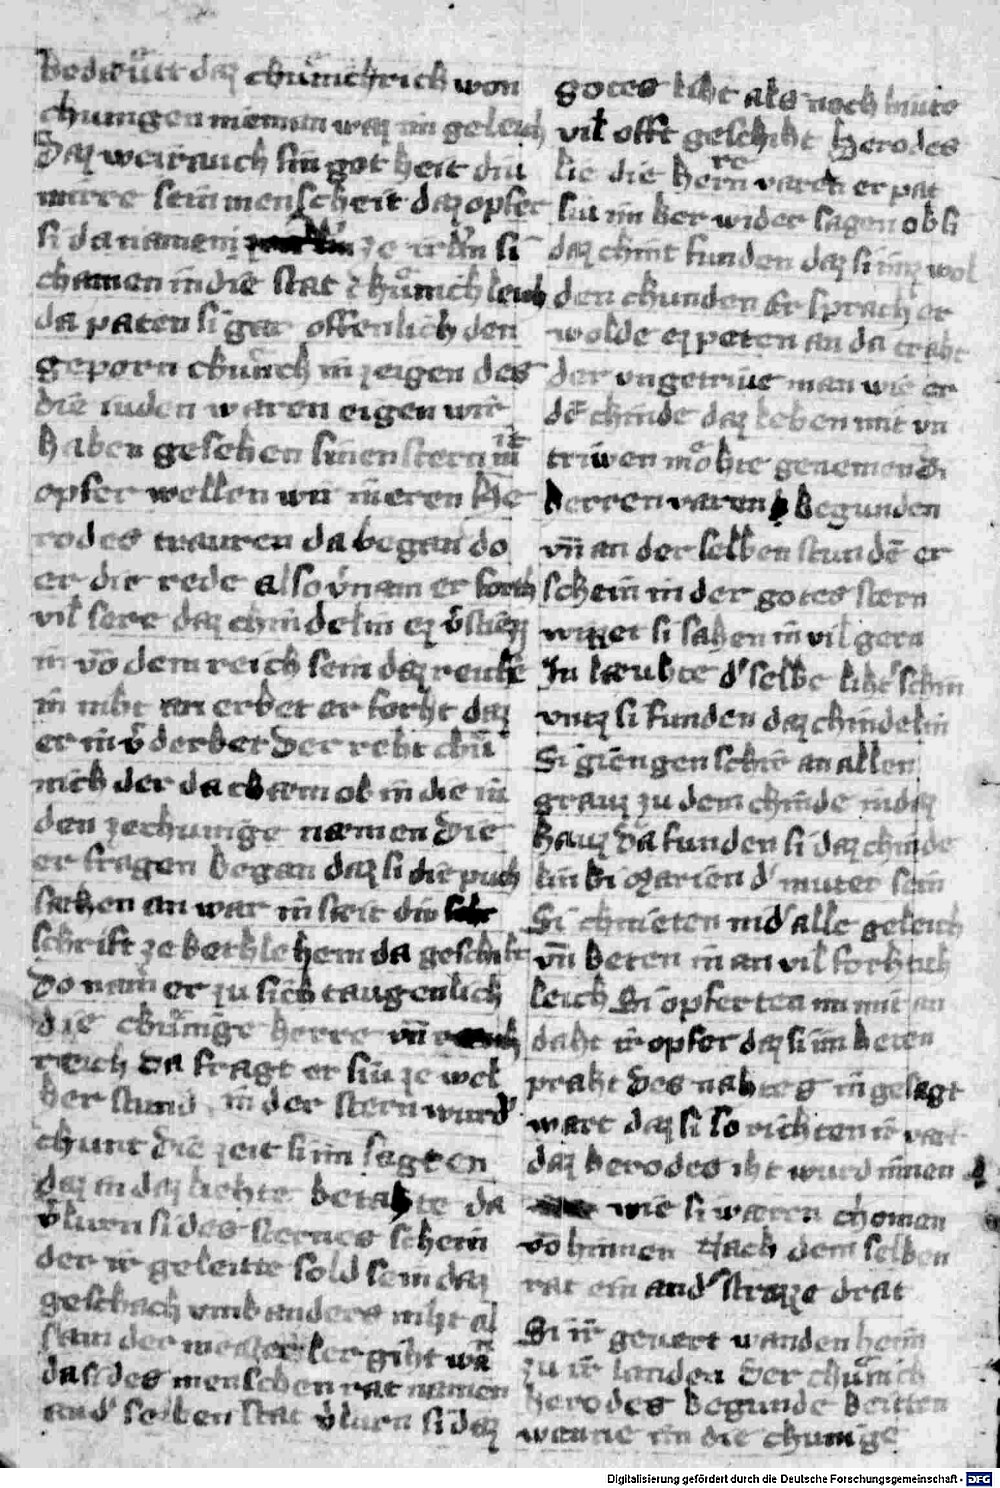 Bedwͤtt daz chuͤnichrich won
chunigen nieman waz im geleich
Daz weirauch sin got heit diu
mirre sein menscheit daz opfer
si da namenz ze tragen si
chamen in die stat chuͤnichleich
da paten si gar offenlich den
geporn chuͤnich in zeigen des
die iuden waren eigen wir
haben gesehen sinen stern mit
opfer wellen wir in eren He
rodes trauren da began do
er die rede also v̓nam er forht
vil sere daz chindelin ez v̓stiezz
in vō dem reich sein daz rentt
in niht an erbet er forht daz
er in v̓derbet Der reht chuͤ
nich der da chæm ob in die iu
den ze chunige næmen Die
er fragen began daz si die puch
sæhen an war in seit diu
schrift ze bethlehem da geschiht
Do nam er zu sich taugenlich
die chuͤnige herre vn̄
reich Da fragt er siu ze wel
her stund in der stern wurd
chunt Die zeit si im sagten
daz in daz liehte betahte da
v̓lurn si des sternes schein
der ir geleitte sold sein daz
geschach vmb anders niht al
sam der meister ler giht wā
da si des menschen rat namen
an d̓ selben stat v̓lurn si daz
gotes liht als noch hiute
vil offt geschiht Herodes
lie die hern varen er pat
siu im her wider sagen ob si
daz chint funden daz si imz wol
den chunden Er sprach er
wolde ez peten an da traht
der vngetriue man wie er
dē chinde daz leben mit vn
triwen moͤhte genemen Di
herren varen begunden
vn̄ an der selben stundē er
schein in der gotes stern
wizzet si sahen in vil gern
In læuhte d̓ selbe liht schin
vntz si funden daz chindelin
Si giengen schir an allen
grauz zu dem chinde in daz
hauz Da funden si daz chinde
lin bi Marien d̓ muter sein
Si chnieten nid̓ alle geleich
vn̄ beten in an vil forhtich
leich Si opferten im mit an
daht ir opfer daz si im heten
praht Des nahtes in gesagt
wart daz si so richten ir vart
daz herodes iht wurd innen
wie si wæren chomen
vō hinnen Nach dem selben
rat ein and̓ strazze drat
Si ir geuert wanden heim
zu ir landen Der chuͤnich
herodes begunde beitten
wanne im die chunige
Digitalisierung gefördert durch die Deutsche Forschungsgemeinschaft - DFG